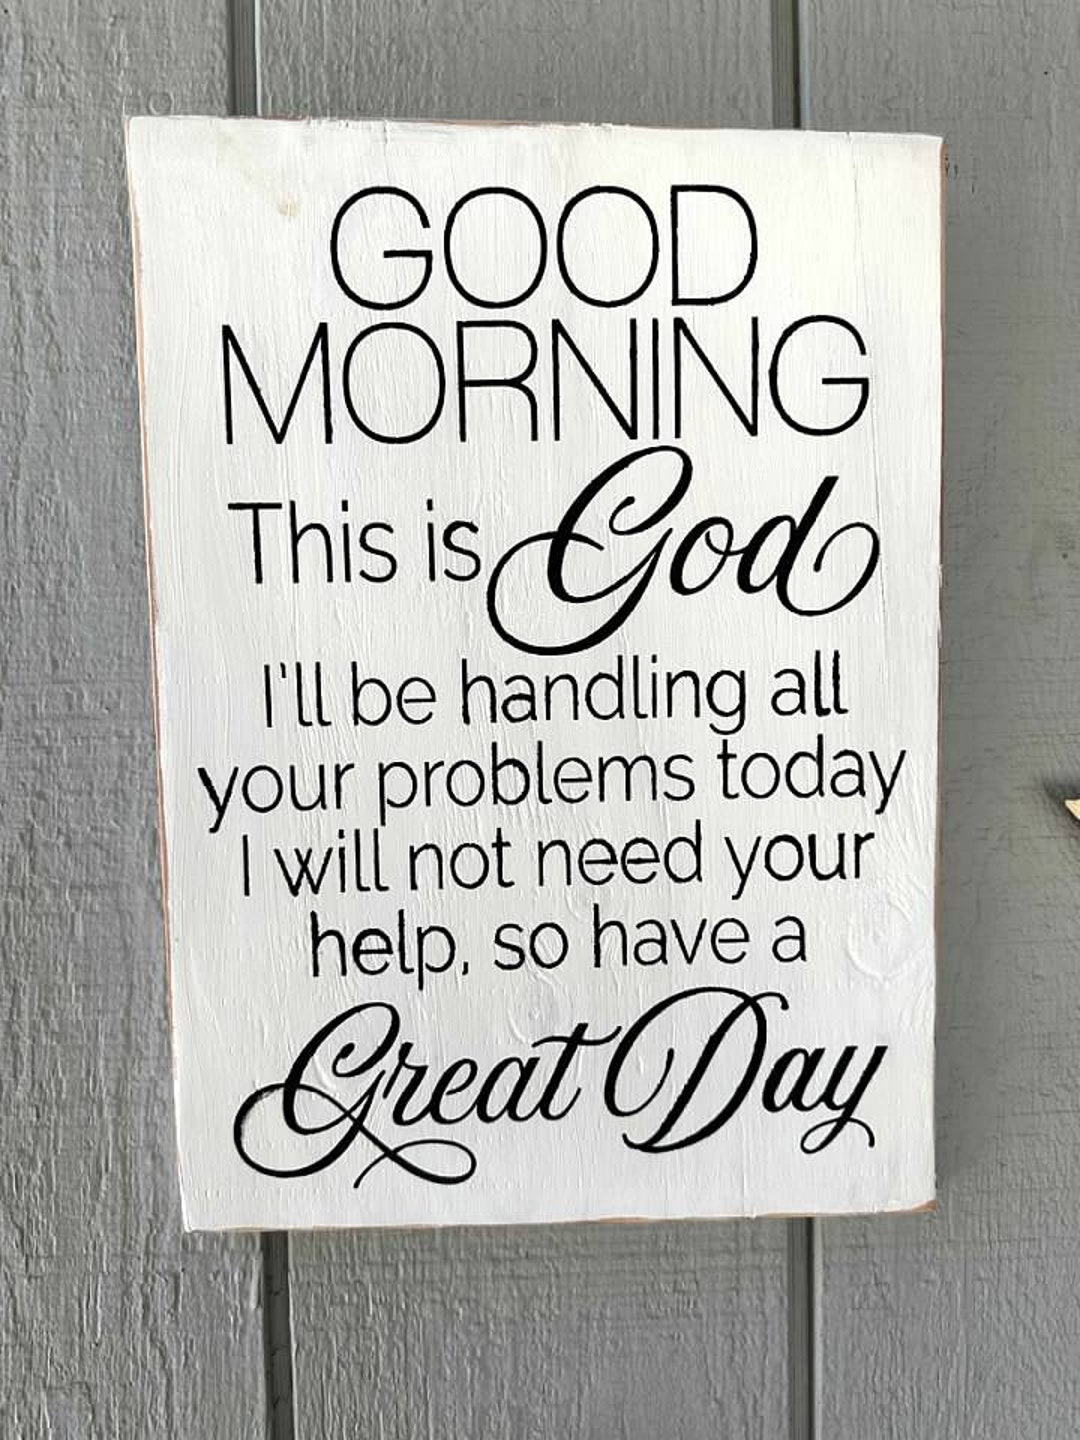 GOOD
MORNING
This is God
I'll be handling all
your problems today
I will not need your
help, so have a
Great Day